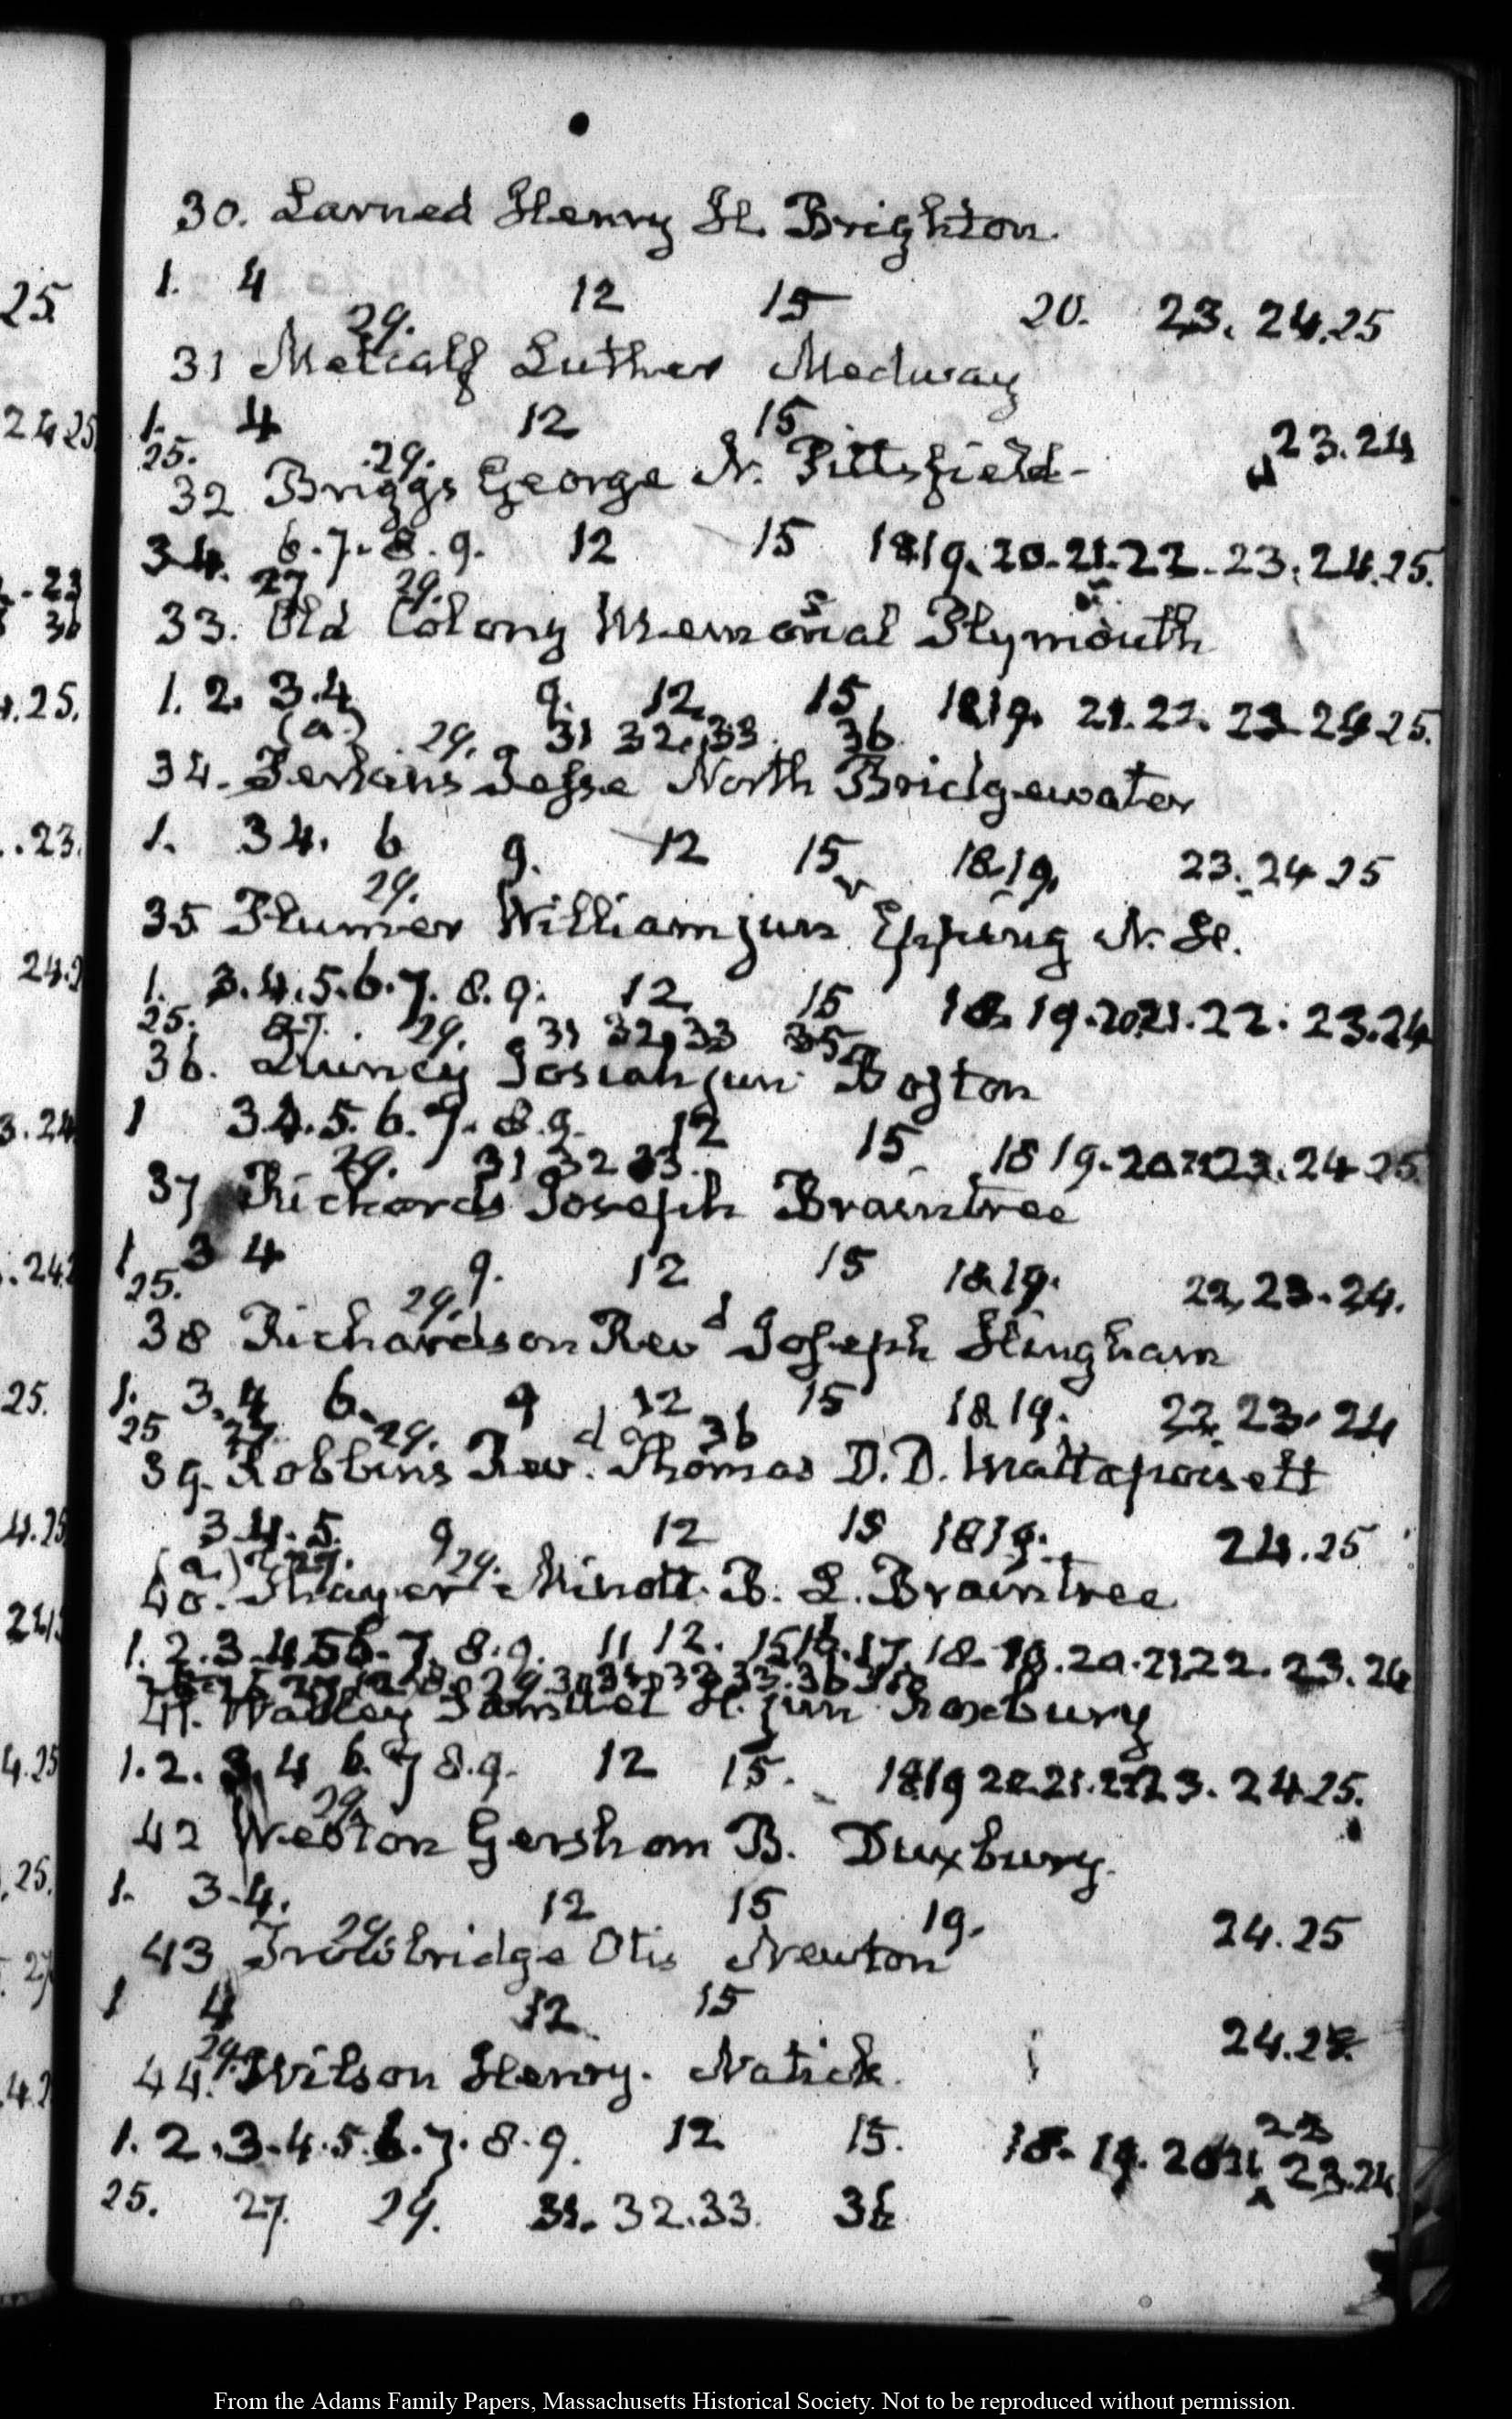 30. Larned Henry H. Brighton.
1. 4 12 15 20. 23. 24.25
29.
31 Metcalf Luther Medway
1. 4 12 15 23.24
25. 29.
32 Briggs George N. Pittsfield-
3 4. 6.7.8.9. 12 15 18 19.20.21.22.23.24.25.
27 29.
33. Old Colony Memorial Plymouth
1. 2. 3.4 9. 12. 15. 18 19. 21.22. 23 24 25.
(a.) 29. 31 32.33. 36
34. Perkins Jesse North Bridgewater
1. 3 4. 6 9. 12 15 18.19. 23.24 25
29.
35 Plumer William jun Epping N. H.
1. 3.4.5.6.7. 8.9. 12. 15 18. 19.20.21.22. 23.24
25. 27. 29. 31 32.33 35
36. Quincy Josiah jun Boston
1 3 4.5.6.7.8.9. 12 15. 18 19.20.21.23.24 25
29. 31 32 33.
37 Richards Joseph Braintree
1 3 4 9. 12 15 18.19. 22.23.24.
25. 29.
38 Richardson Revd Joseph Hingham
1. 3.4 6. 9 12 15 18 19. 22. 23. 24
25 27. 29. 36
39. Robbins Revd. Thomas D.D. Mattapoisett
3 4.5. 9 12 15 18 19. 24.25
(a.) 27. 29.
40. Thayer Minott B. L. Braintree
1.2.3.4 5 6.7. 8.9. 11 12. 15 16.17.18.19.20.21.22. 23.24
41. Walley Samuel H. jun Roxbury
1.2. 3.4 6.7 8.9. 12 15. 18 19 20.21.22 23. 24.25.
29.
42 Weston Gershom B. Duxbury.
1. 3.4. 12 15 19. 24.25
29
43 Trowbridge Otis Newton
1 4 12. 15 24.25.
29.
44. Wilson Henry. Natick.
22
1. 2.3.4.5.6.7.8.9. 12 15. 18. 19. 20 21 23.24
25. 27. 29. 31. 32.33. 36
25.
24 25
. 23
36
.25.
.23.
24.2
3.24
.24.2
25.
4.25
24.
4.25
.25.
27
From the Adams Family Papers, Massachusetts Historical Society. Not to be reproduced without permission.